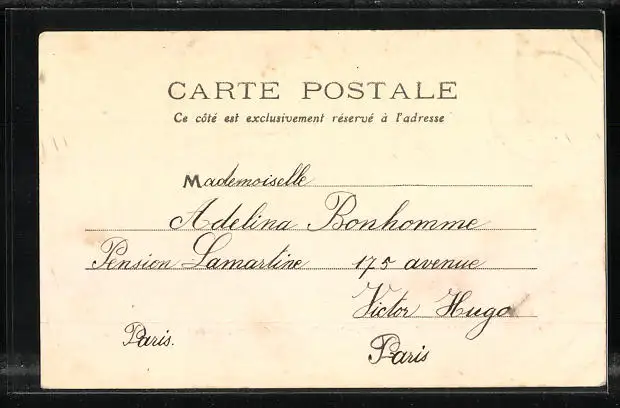 CARTE POSTALE
Ce côté est exclusivement réservé à l'adresse
Mademoiselle
Adelina Bonhomme
Pension Lamartine 175 avenue
Victor Hugo
Paris.
Paris